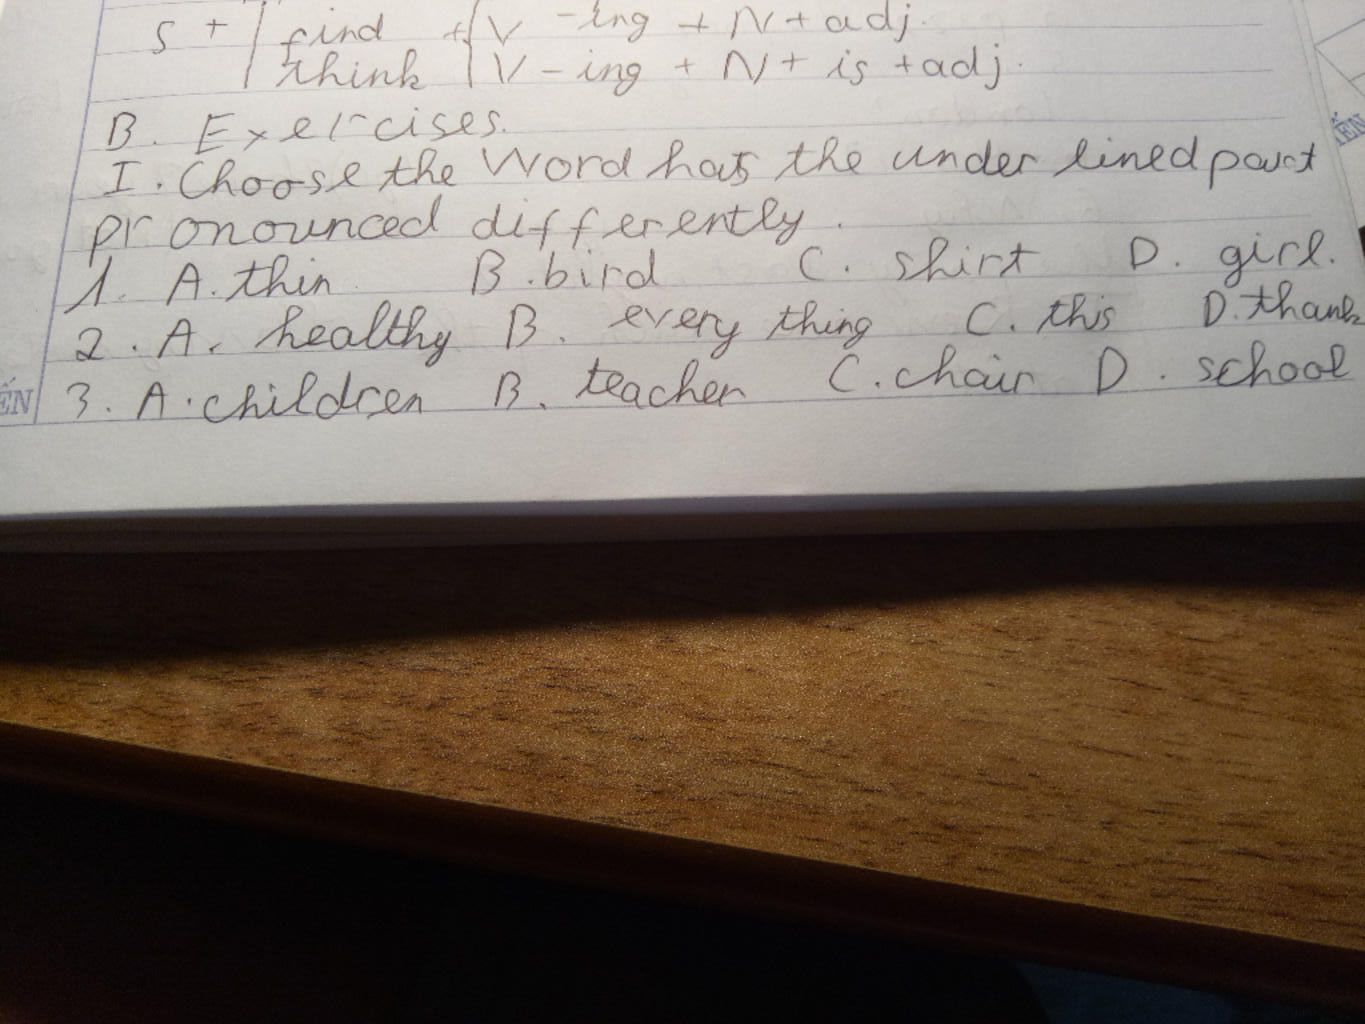 S + find + V -ing + N + adj.
think V - ing + N + is + adj.
B. Exercises.
I. Choose the Word has the under lined part
pronounced differently.
1. A. thin B. bird C. shirt D. girl.
2. A. healthy B. every thing C. this D. thank
3. A. children B. teacher C. chair D. school
ẾN